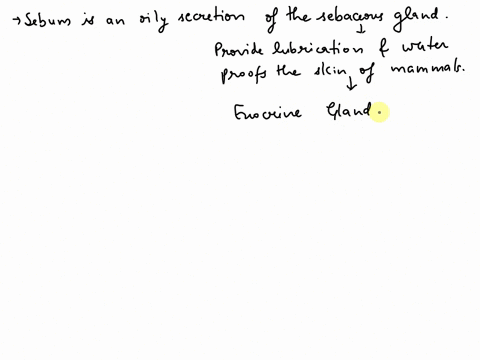 → Sebum is an oily secretion of the sebaceous gland.
↓
Provide lubrication & water
proofs the skin of mammals.
↓
Exocrine Gland.